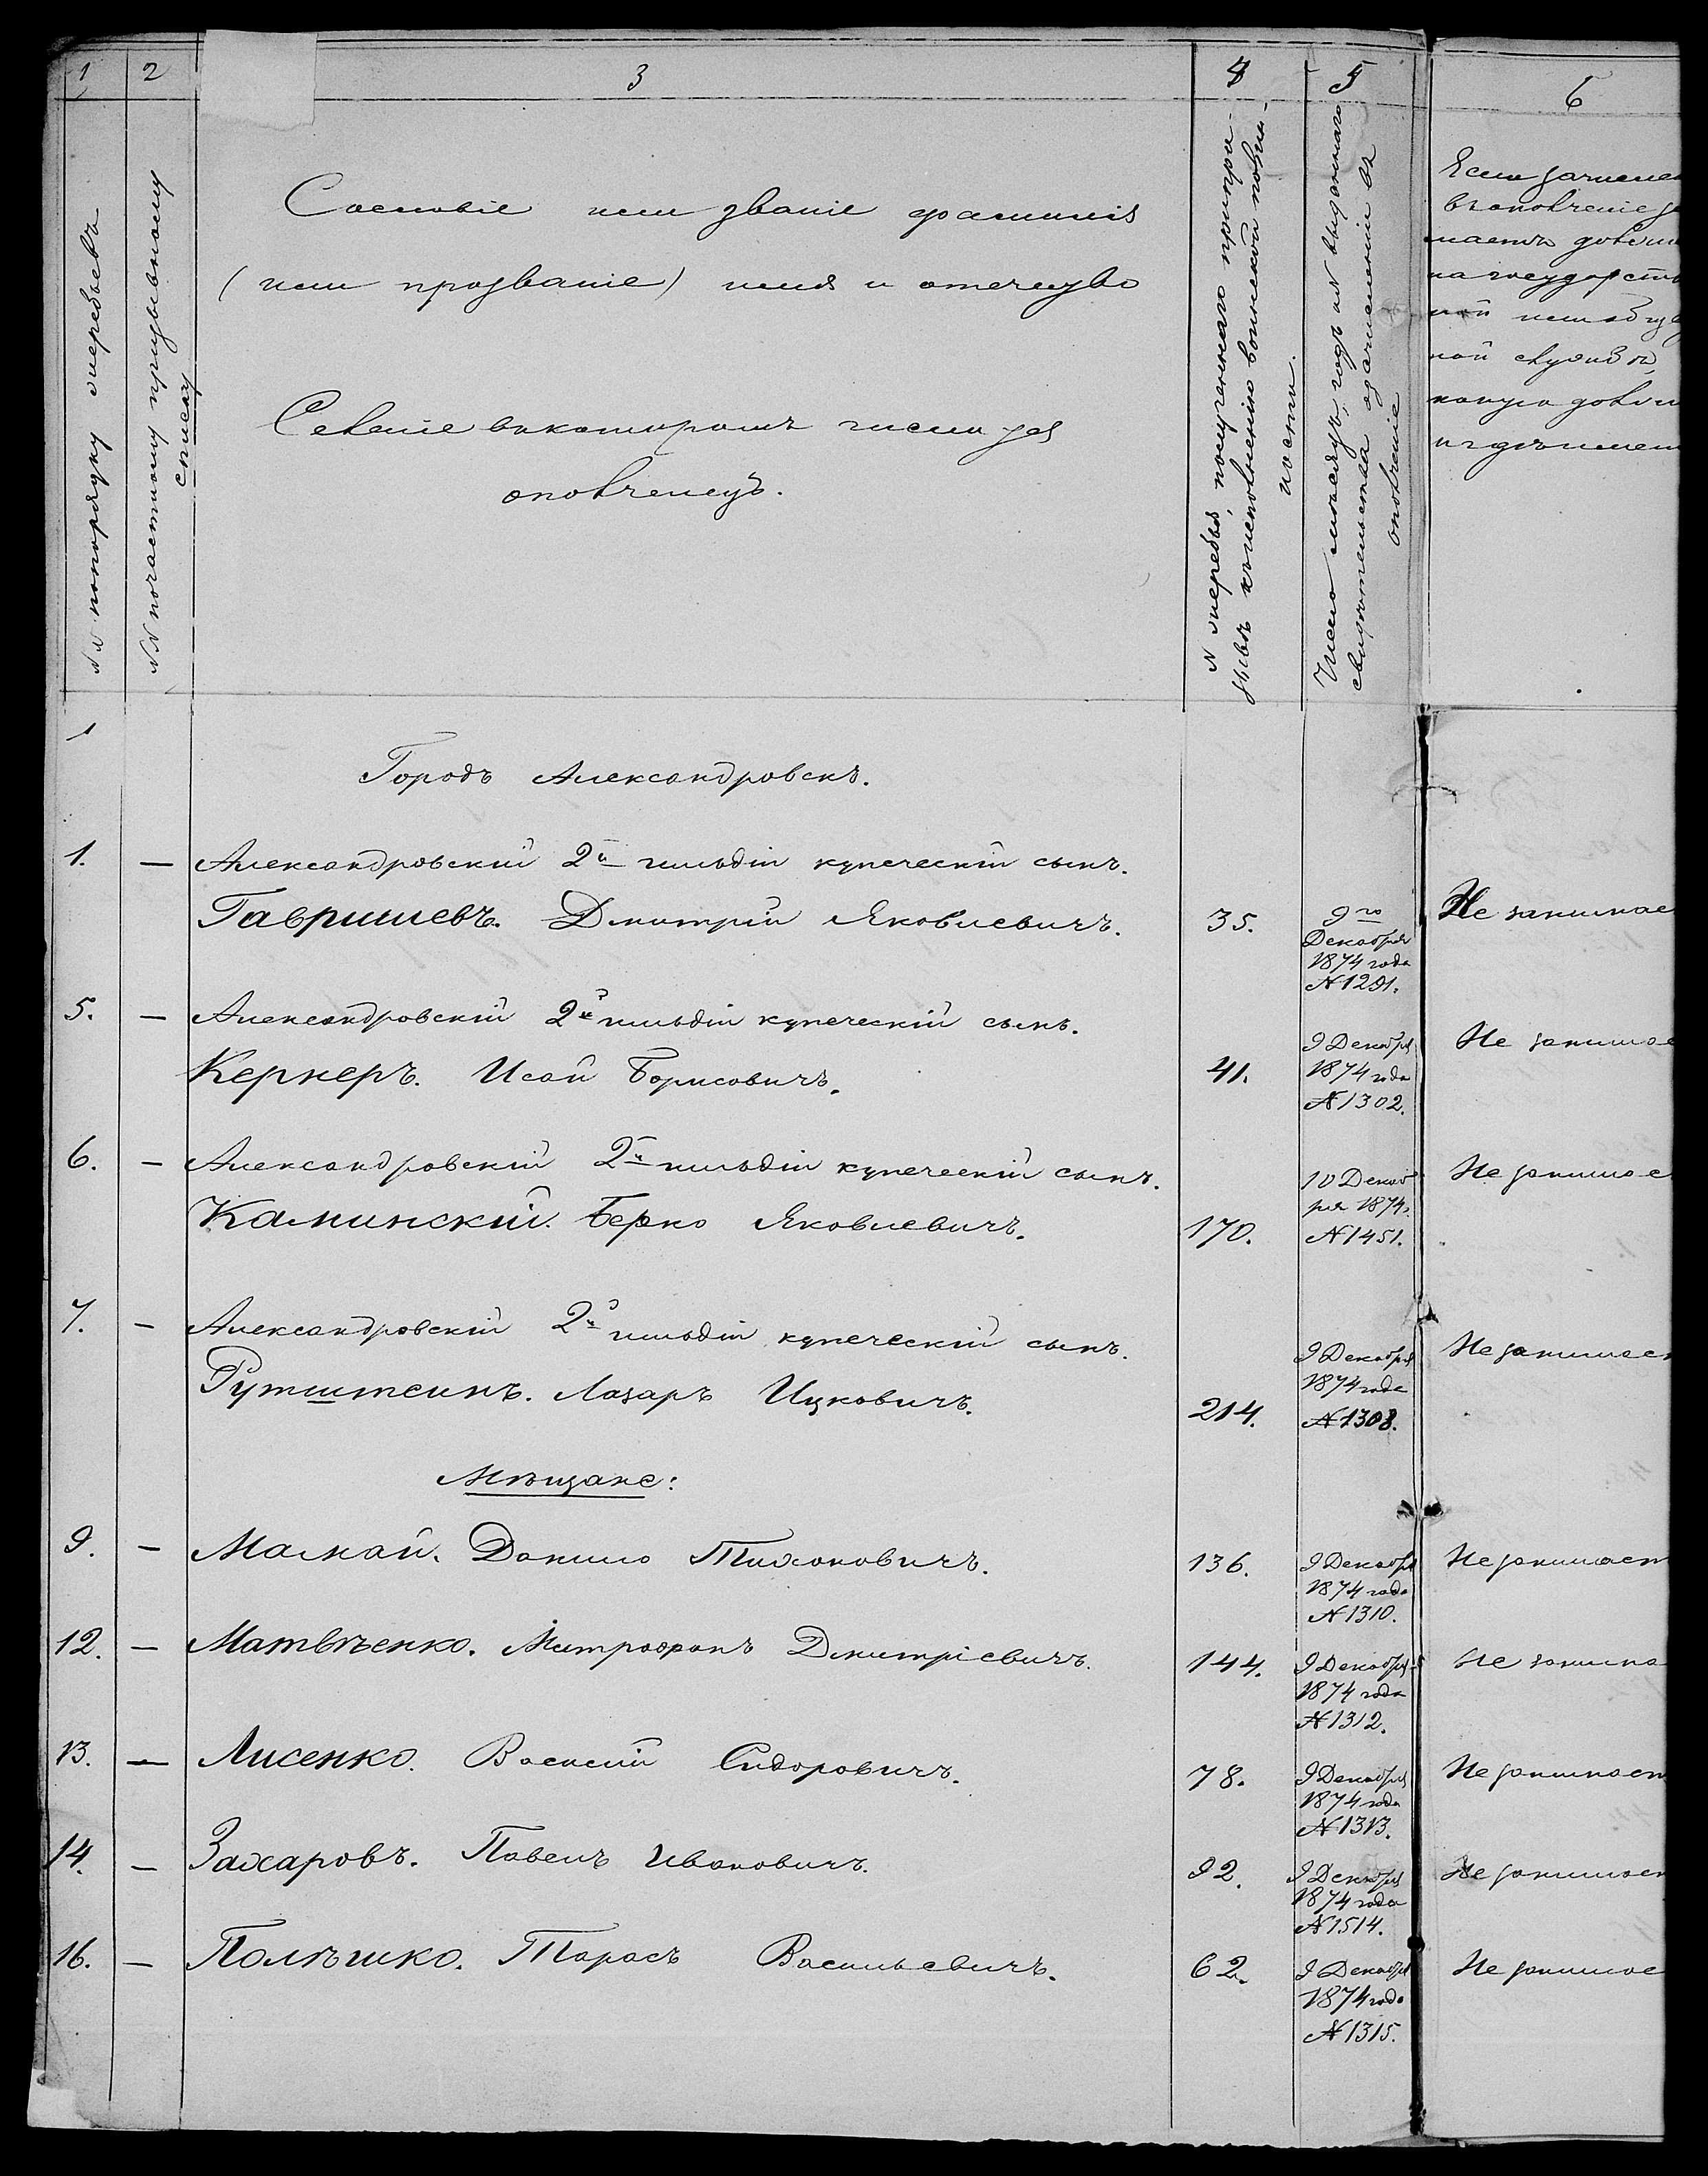 1 2 3 4 5 6
№№ попорядку жеребьевъ
№№ почастному призывному
списку
Сословіе или званіе фамилія
(или прозваніе) имя и отечество
Селеніе вкоторомъ числится
ополченецъ.
№ жеребья, полученнаго припри-
зывѣ къисполненію воинской повин-
ности.
Число мѣсяцъ, годъ и № выданнаго
свидѣтельства о зачисленіи въ
ополченіе
Если зачислен
въополченіе за
маетъ должн
на государств
ной или обще
ной службѣ,
какую должн
игдѣ именн
1
Городъ Александровскъ.
1. — Александровскій 2й гильдіи купеческій сынъ.
Гавришевъ. Дмитрій Яковлевичъ. 35. 9го Декабря 1874 года № 1291. Не занимае
5. — Александровскій 2й гильдіи купеческій сынъ.
Кернеръ. Исай Борисовичъ. 41. 9 Декабря 1874 года № 1302. Не занимае
6. — Александровскій 2й гильдіи купеческій сынъ.
Каминскій. Берко Яковлевичъ. 170. 10 Декаб ря 1874. № 1451. Не занимае
7. — Александровскій 2й гильдіи купеческій сынъ.
Рутштеинъ. Лазаръ Ицковичъ. 214. 9 Декабря 1874 года № 1308. Не занимает
Мѣщане:
9. — Малкай. Данило Тихоновичъ. 136. 9 Декабря 1874 года № 1310. Не занимает
12. — Матвѣенко. Митрофанъ Дмитріевичъ. 144. 9 Декабря 1874 года № 1312. Не занима
13. — Лисенко. Василій Сидоровичъ. 78. 9 Декабря 1874 года № 1313. Не занимает
14. — Захаровъ. Павелъ Ивановичъ. 92. 9 Декабря 1874 года № 1514. Не занимает
16. — Полѣшко. Тарасъ Васильевичъ. 62. 9 Декабря 1874 года № 1315. Не занимае